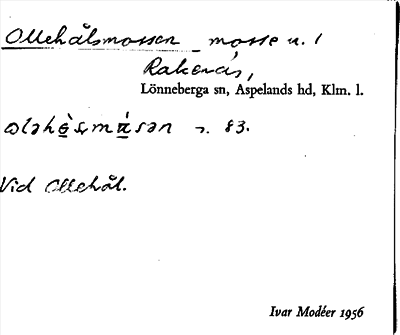 Ollehålsmossen mosse u. /
Rakenäs,
Lönneberga sn, Aspelands hd, Klm. l.
83.
Vid Ollehål.
Ivar Modéer 1956